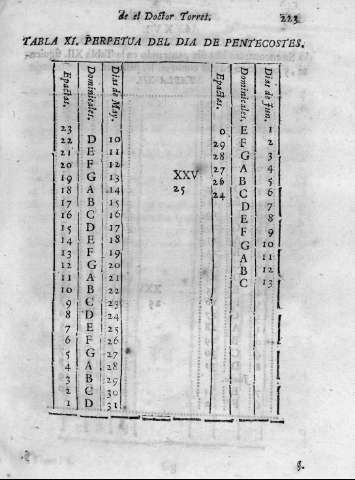 de el Doctor Torres. 223
TABLA XI. PERPETUA DEL DIA DE PENTECOSTES.
Epactas. Dominicales. Dias de May. Epactas. Dominicales. Dias de Jun.
23 0 E 1
22 D 10 29 F 2
21 E 11 28 G 3
20 F 12 XXV 27 A 4
19 G 13 25 26 B 5
18 A 14 24 C 6
17 B 15 D 7
16 C 16 E 8
15 D 17 F 9
14 E 18 G 10
13 F 19 A 11
12 G 20 B 12
11 A 21 C 13
10 B 22
9 C 23
8 D 24
7 E 25
6 F 26
5 G 27
4 A 28
3 B 29
2 C 30
1 D 31